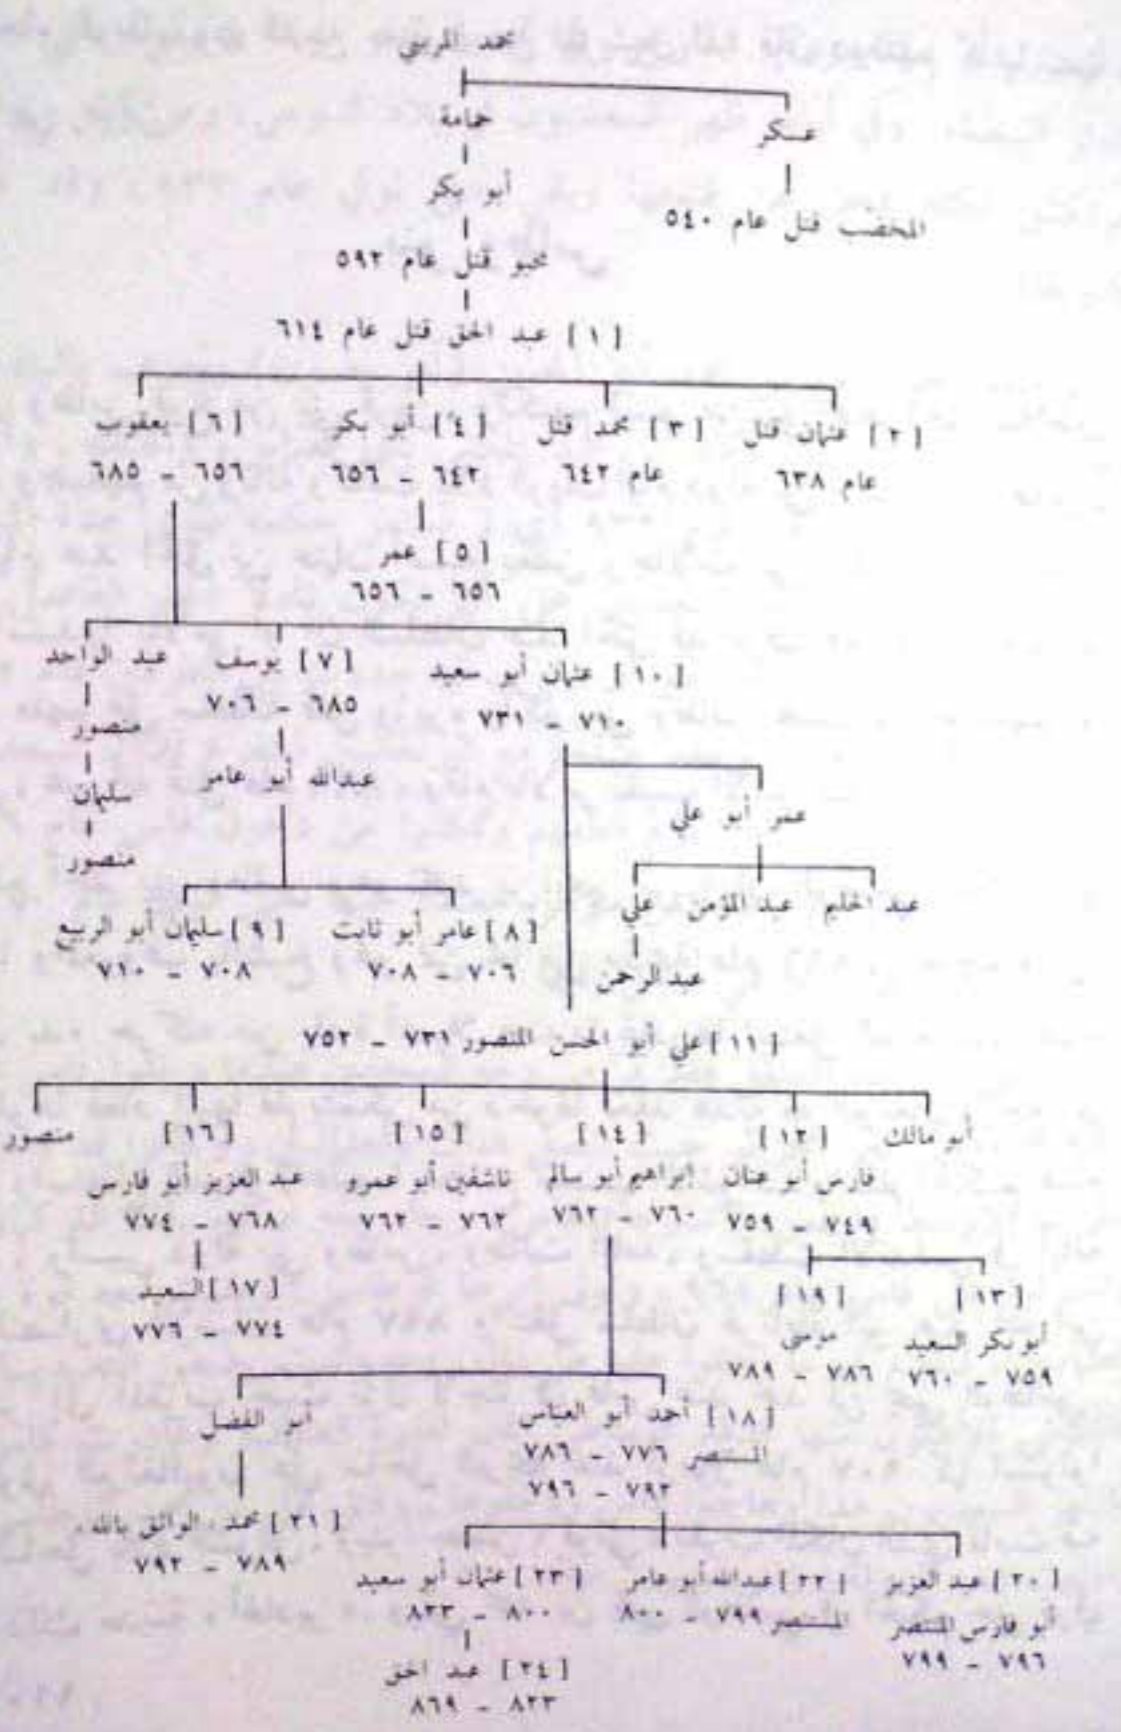 محمد المريني
حمامة
عسكر
أبو بكر
المخضب قتل عام ٥٤٠
محيو قتل عام ٥٩٢
[ ١ ] عبد الحق قتل عام ٦١٤
[ ٢ ] عثمان قتل
عام ٦٣٨
[ ٣ ] محمد قتل
عام ٦٤٢
[ ٤ ] أبو بكر
٦٤٢ - ٦٥٦
[ ٦ ] يعقوب
٦٥٦ - ٦٨٥
[ ٥ ] عمر
٦٥٦ - ٦٥٦
[ ١٠ ] عثمان أبو سعيد
٧١٠ - ٧٣١
[ ٧ ] يوسف
٦٨٥ - ٧٠٦
عبد الواحد
منصور
سليمان
منصور
عبدالله أبو عامر
عمر أبو علي
عبد الحليم
عبد المؤمن
علي
عبدالرحمن
[ ٨ ] عامر أبو ثابت
٧٠٦ - ٧٠٨
[ ٩ ] سليمان أبو الربيع
٧٠٨ - ٧١٠
[ ١١ ] علي أبو الحسن المنصور ٧٣١ - ٧٥٢
أبو مالك
[ ١٢ ]
فارس أبو عنان
٧٤٩ - ٧٥٩
[ ١٤ ]
إبراهيم أبو سالم
٧٦٠ - ٧٦٢
[ ١٥ ]
تاشفين أبو عمرو
٧٦٢ - ٧٦٣
[ ١٦ ]
عبد العزيز أبو فارس
٧٦٨ - ٧٧٤
منصور
[ ١٣ ]
أبو بكر السعيد
٧٥٩ - ٧٦٠
[ ١٩ ]
موسى
٧٨٦ - ٧٨٩
[ ١٧ ] السعيد
٧٧٤ - ٧٧٦
[ ١٨ ] أحمد أبو العباس
المستنصر ٧٧٦ - ٧٨٦
٧٩٢ - ٧٩٦
أبو الفضل
[ ٢١ ] محمد . الواثق بالله .
٧٨٩ - ٧٩٢
[ ٢٠ ] عبد العزيز
أبو فارس المنتصر
٧٩٦ - ٧٩٩
[ ٢٢ ] عبدالله أبو عامر
المستنصر ٧٩٩ - ٨٠٠
[ ٢٣ ] عثمان أبو سعيد
٨٠٠ - ٨٢٣
[ ٢٤ ] عبد الحق
٨٢٣ - ٨٦٩